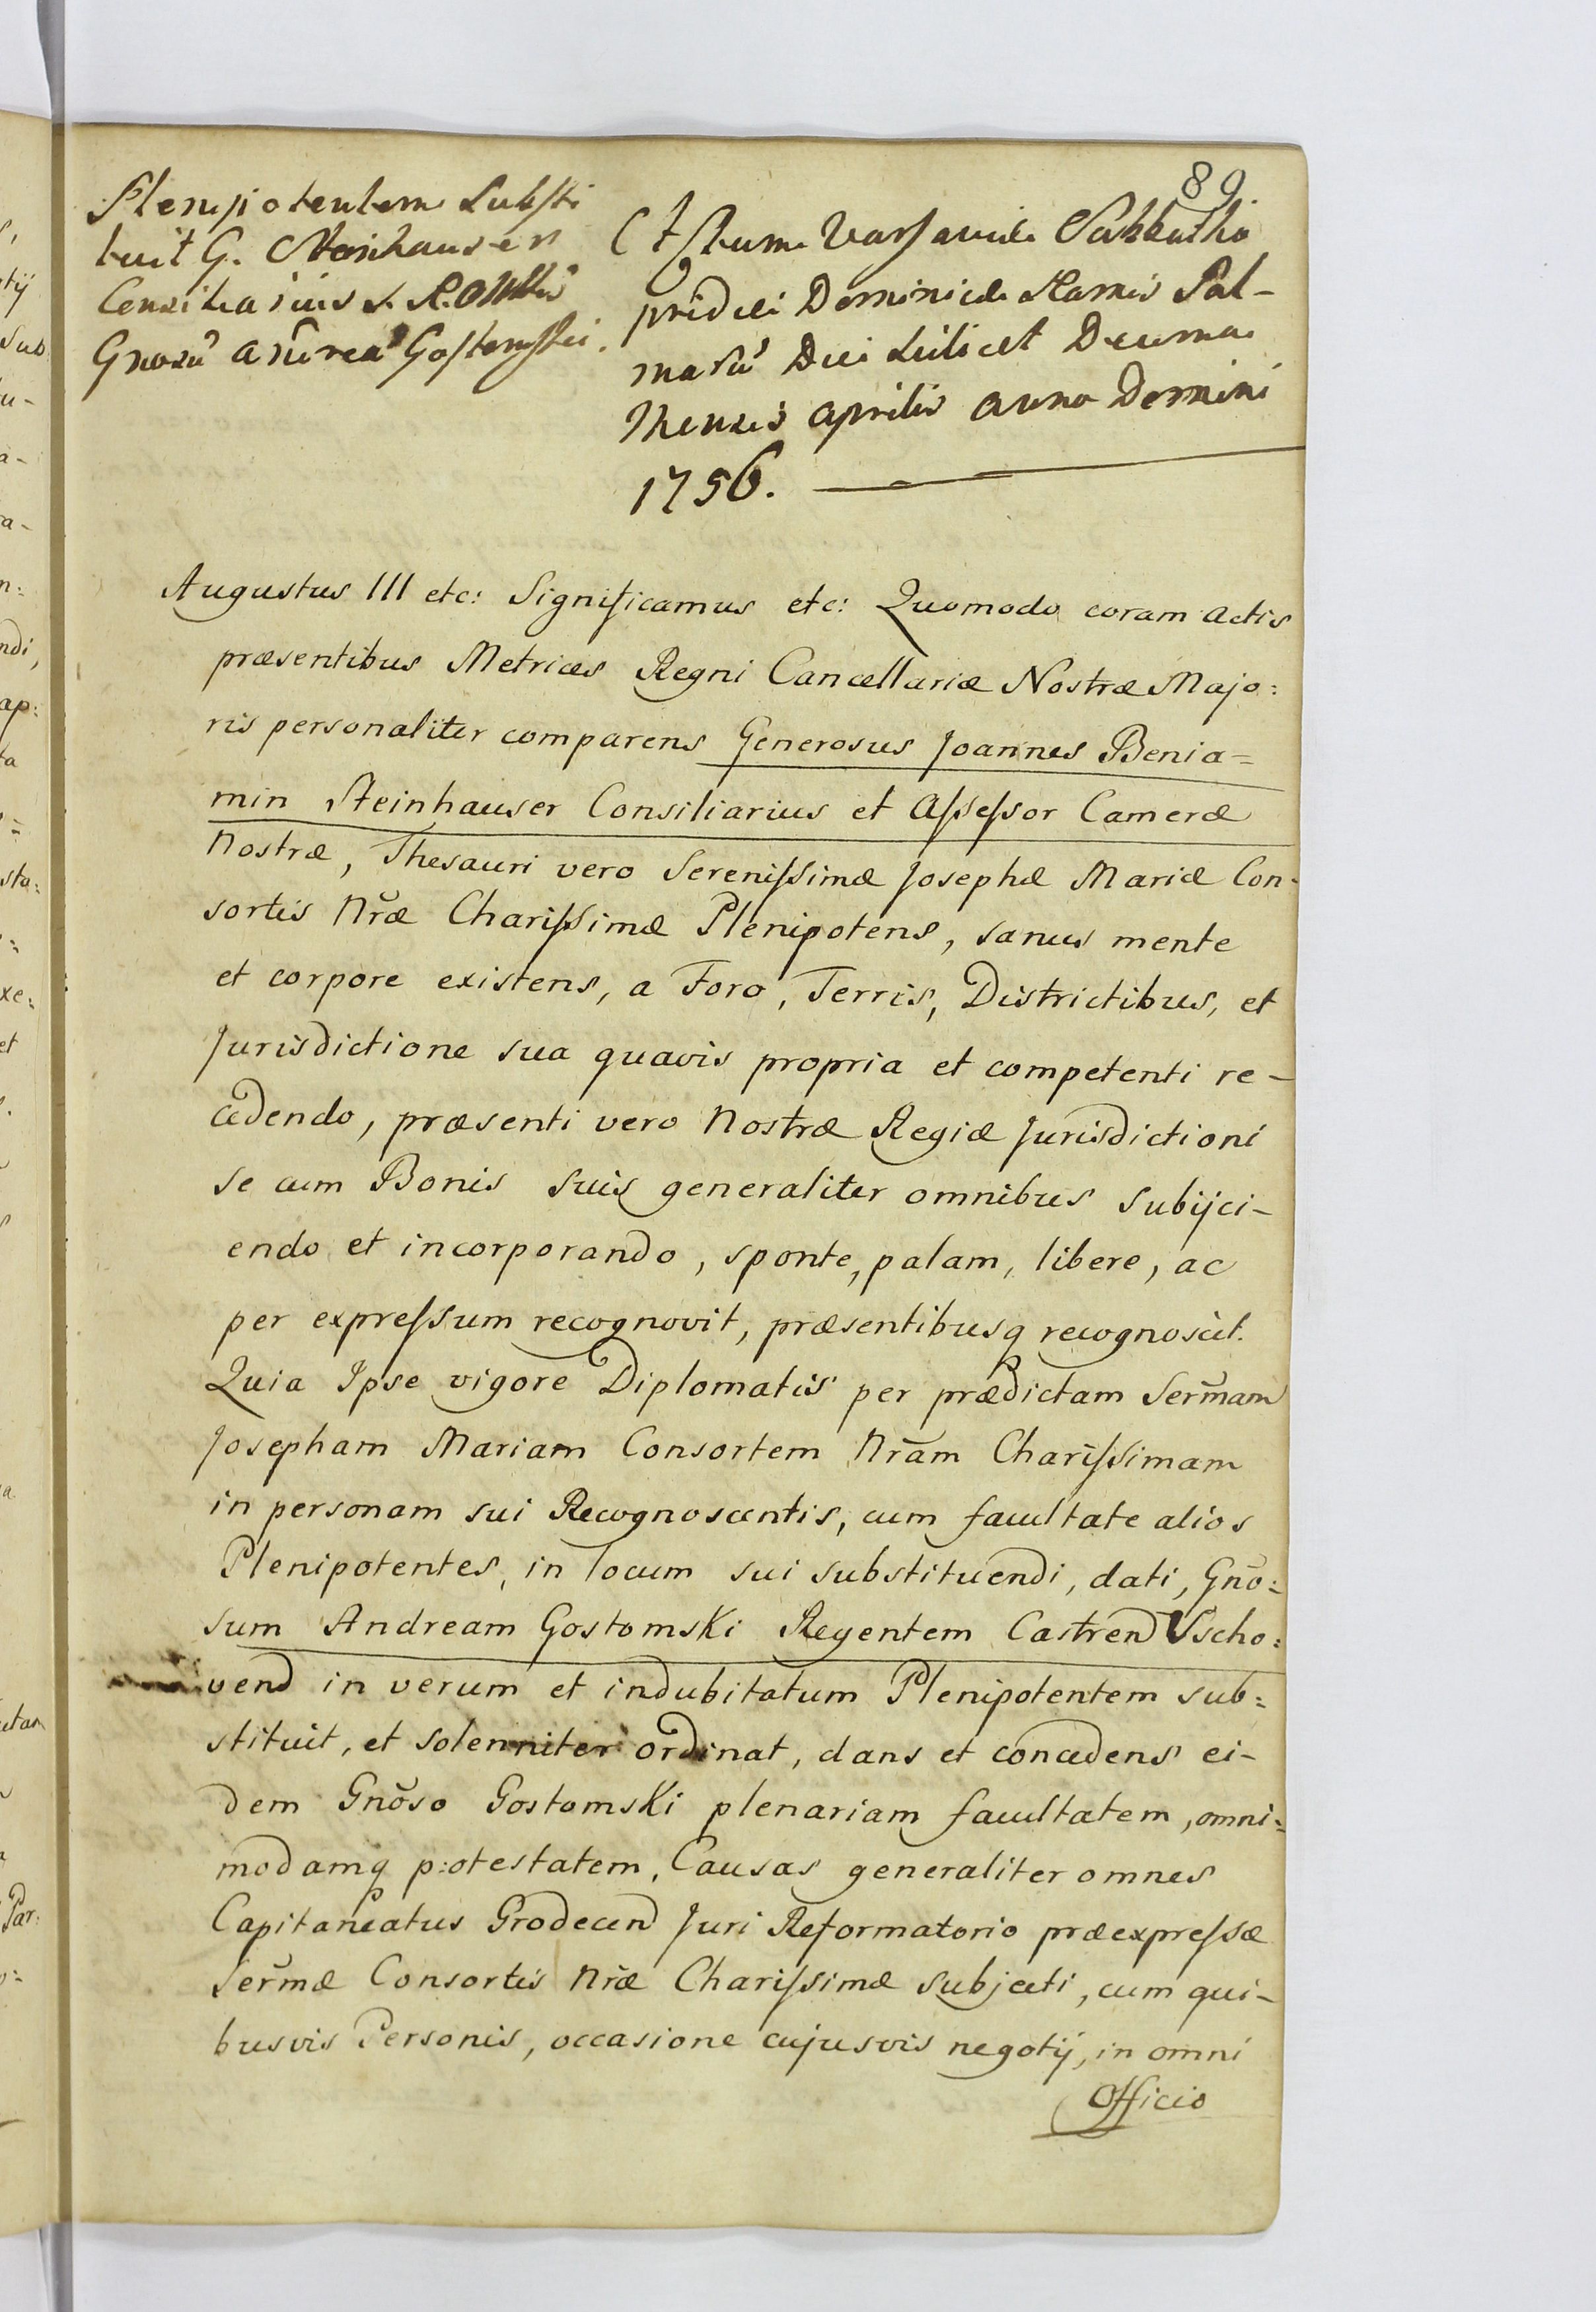 89
Plenipotentem Substi
tuit G. Steinhauser
Consiliarius S. R. Mttis
Gnosū Andreā Gostomski.
Actum Varsaviæ Sabbatho
pridie Dominicæ Ramis Pal-
marū Die scilicet Decima
Mensis Aprilis Anno Domini
1756.
Augustus III etc: Significamus etc: Quomodo coram Actis
præsentibus Metrices Regni Cancellariæ Nostræ Majo:
ris personaliter comparens Generosus Joannes Benia=
min Steinhauser Consiliarius et Assessor Cameræ
Nostræ, Thesauri vero Serenissimæ Josephæ Mariæ Con-
sortis Nr̃æ Charissimæ Plenipotens, sanus mente
et corpore existens, a Foro, Terris, Districtibus, et
Jurisdictione sua quavis propria et competenti re-
cedendo, præsenti vero Nostræ Regiæ Jurisdictioni
se cum Bonis suis generaliter omnibus subijci-
endo et incorporando, sponte, palam, libere, ac
per expressum recognovit, præsentibusq recognoscit.
Quia Ipse vigore Diplomatis per prædictam Serm̃am
Josepham Mariam Consortem Nrãm Charissimam
in personam sui Recognoscentis, cum facultate alios
Plenipotentes, in locum sui substituendi, dati, Gnõ:
sum Andream Gostomski Regentem Castren Vscho:
ven in verum et indubitatum Plenipotentem sub:
stituit, et solenniter ordinat, dans et concedens ei-
dem Gnõso Gostomski plenariam facultatem, omni:
modamq p:otestatem, Causas generaliter omnes
Capitaneatus Grodecen Juri Reformatorio præexpressæ
Serm̃æ Consortis Nr̃æ Charissimæ subjecti, cum qui-
busvis Personis, occasione cujusvis negotij, in omni
Officio